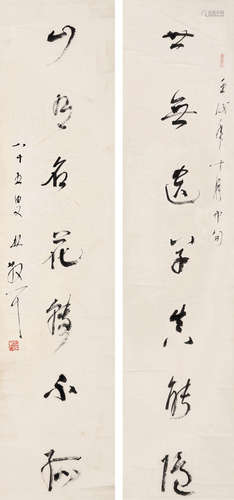 壬戌年十月中旬
世無遺草真能隱
山有名花轉不孤
八十五叟林散耳